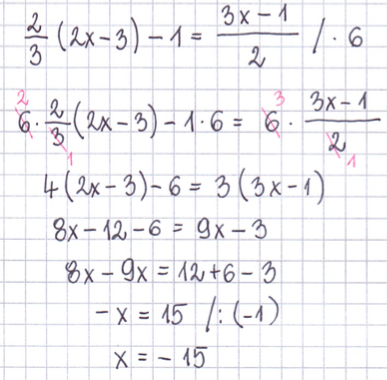 2/3 (2x-3) - 1 = (3x-1)/2 / · 6
²6 · 2/3₁ (2x-3) - 1·6 = ³6 · (3x-1)/2₁
4(2x-3) - 6 = 3(3x-1)
8x - 12 - 6 = 9x - 3
8x - 9x = 12 + 6 - 3
-x = 15 /: (-1)
x = - 15